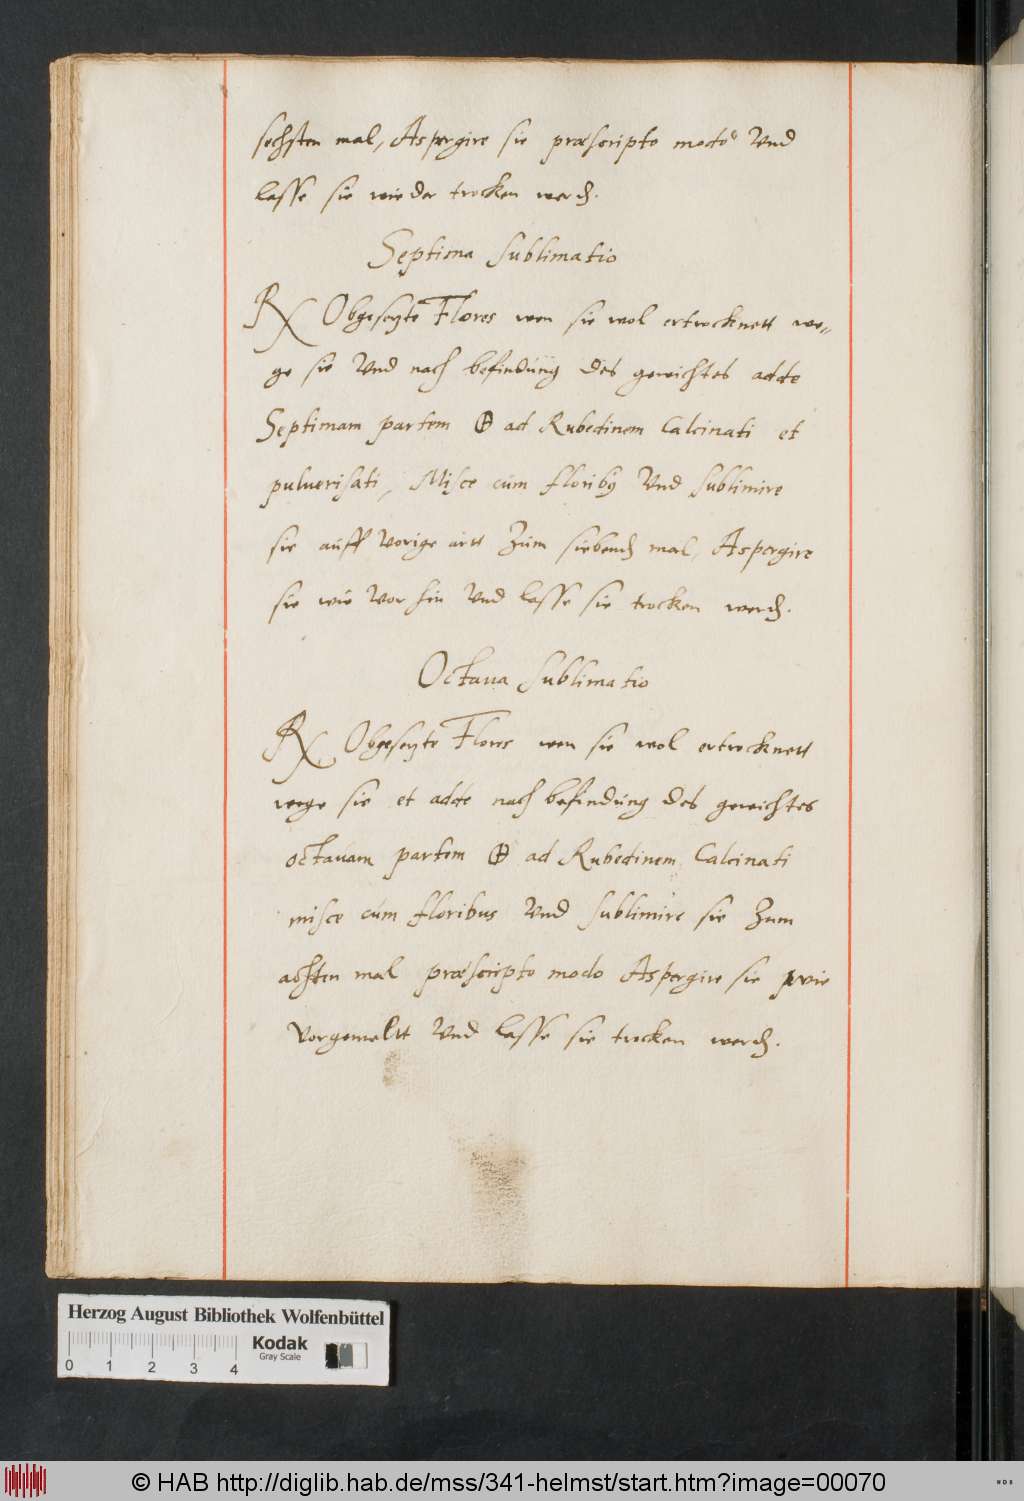 sechsten mal, Aspergire sie præscripto modo Und
lasse sie wieder trocken werdn.
Septima Sublimatio
℞ Obgesezte Flores wen sie wol ertrocknett we=
ge sie Und nach befindung des gewichtes adde
Septimam partem 🜨 ad Rubedinem Calcinati et
puluerisati, Misce cum floribꝰ Und Sublimire
sie auff Vorige artt Zum siebendn mal, Aspergire
sie wie Vor hin Und lasse sie trocken werdn.
Octaua Sublimatio
℞ Obgesezte Flores wen sie wol ertrocknett
wege sie et adde nach befindung des gewichtes
octauam partem 🜨 ad Rubedinem Calcinati
misce cum floribus Und Sublimire sie Zum
achten mal præscripto modo Aspergire sie wie
Vorgemeltt Und lasse sie trocken werdn.
Herzog August Bibliothek Wolfenbüttel
0 1 2 3 4
Kodak
Gray Scale
© HAB http://diglib.hab.de/mss/341-helmst/start.htm?image=00070